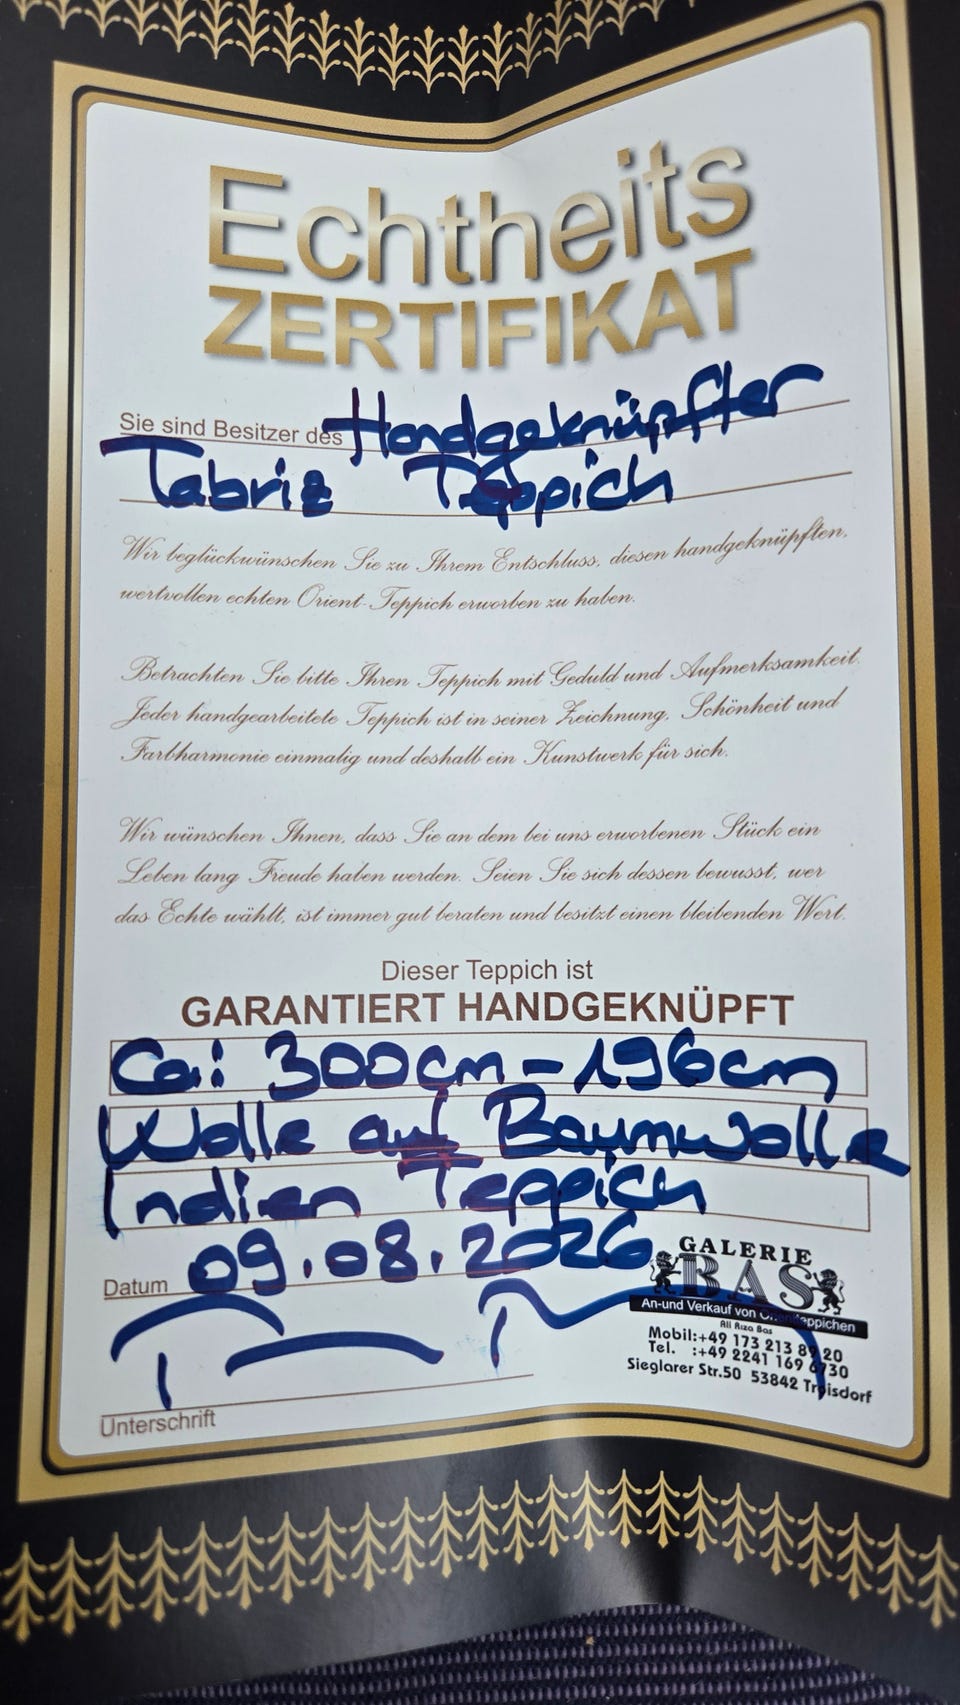 Echtheits
ZERTIFIKAT
Sie sind Besitzer des Handgeknüpfter
Tabriz Teppich
Wir beglückwünschen Sie zu Ihrem Entschluss, diesen handgeknüpften,
wertvollen echten Orient-Teppich erworben zu haben.
Betrachten Sie bitte Ihren Teppich mit Geduld und Aufmerksamkeit.
Jeder handgearbeitete Teppich ist in seiner Zeichnung, Schönheit und
Farbharmonie einmalig und deshalb ein Kunstwerk für sich.
Wir wünschen Ihnen, dass Sie an dem bei uns erworbenen Stück ein
Leben lang Freude haben werden. Seien Sie sich dessen bewusst, wer
das Echte wählt, ist immer gut beraten und besitzt einen bleibenden Wert.
Dieser Teppich ist
GARANTIERT HANDGEKNÜPFT
Ca: 300cm - 196cm
Wolle auf Baumwolle
Indien Teppich
Datum 09.08.2026
GALERIE
BAS
An-und Verkauf von Orientteppichen
Ali Riza Bas
Mobil:+49 173 213 89 20
Tel. :+49 2241 169 6730
Sieglarer Str.50 53842 Troisdorf
Unterschrift